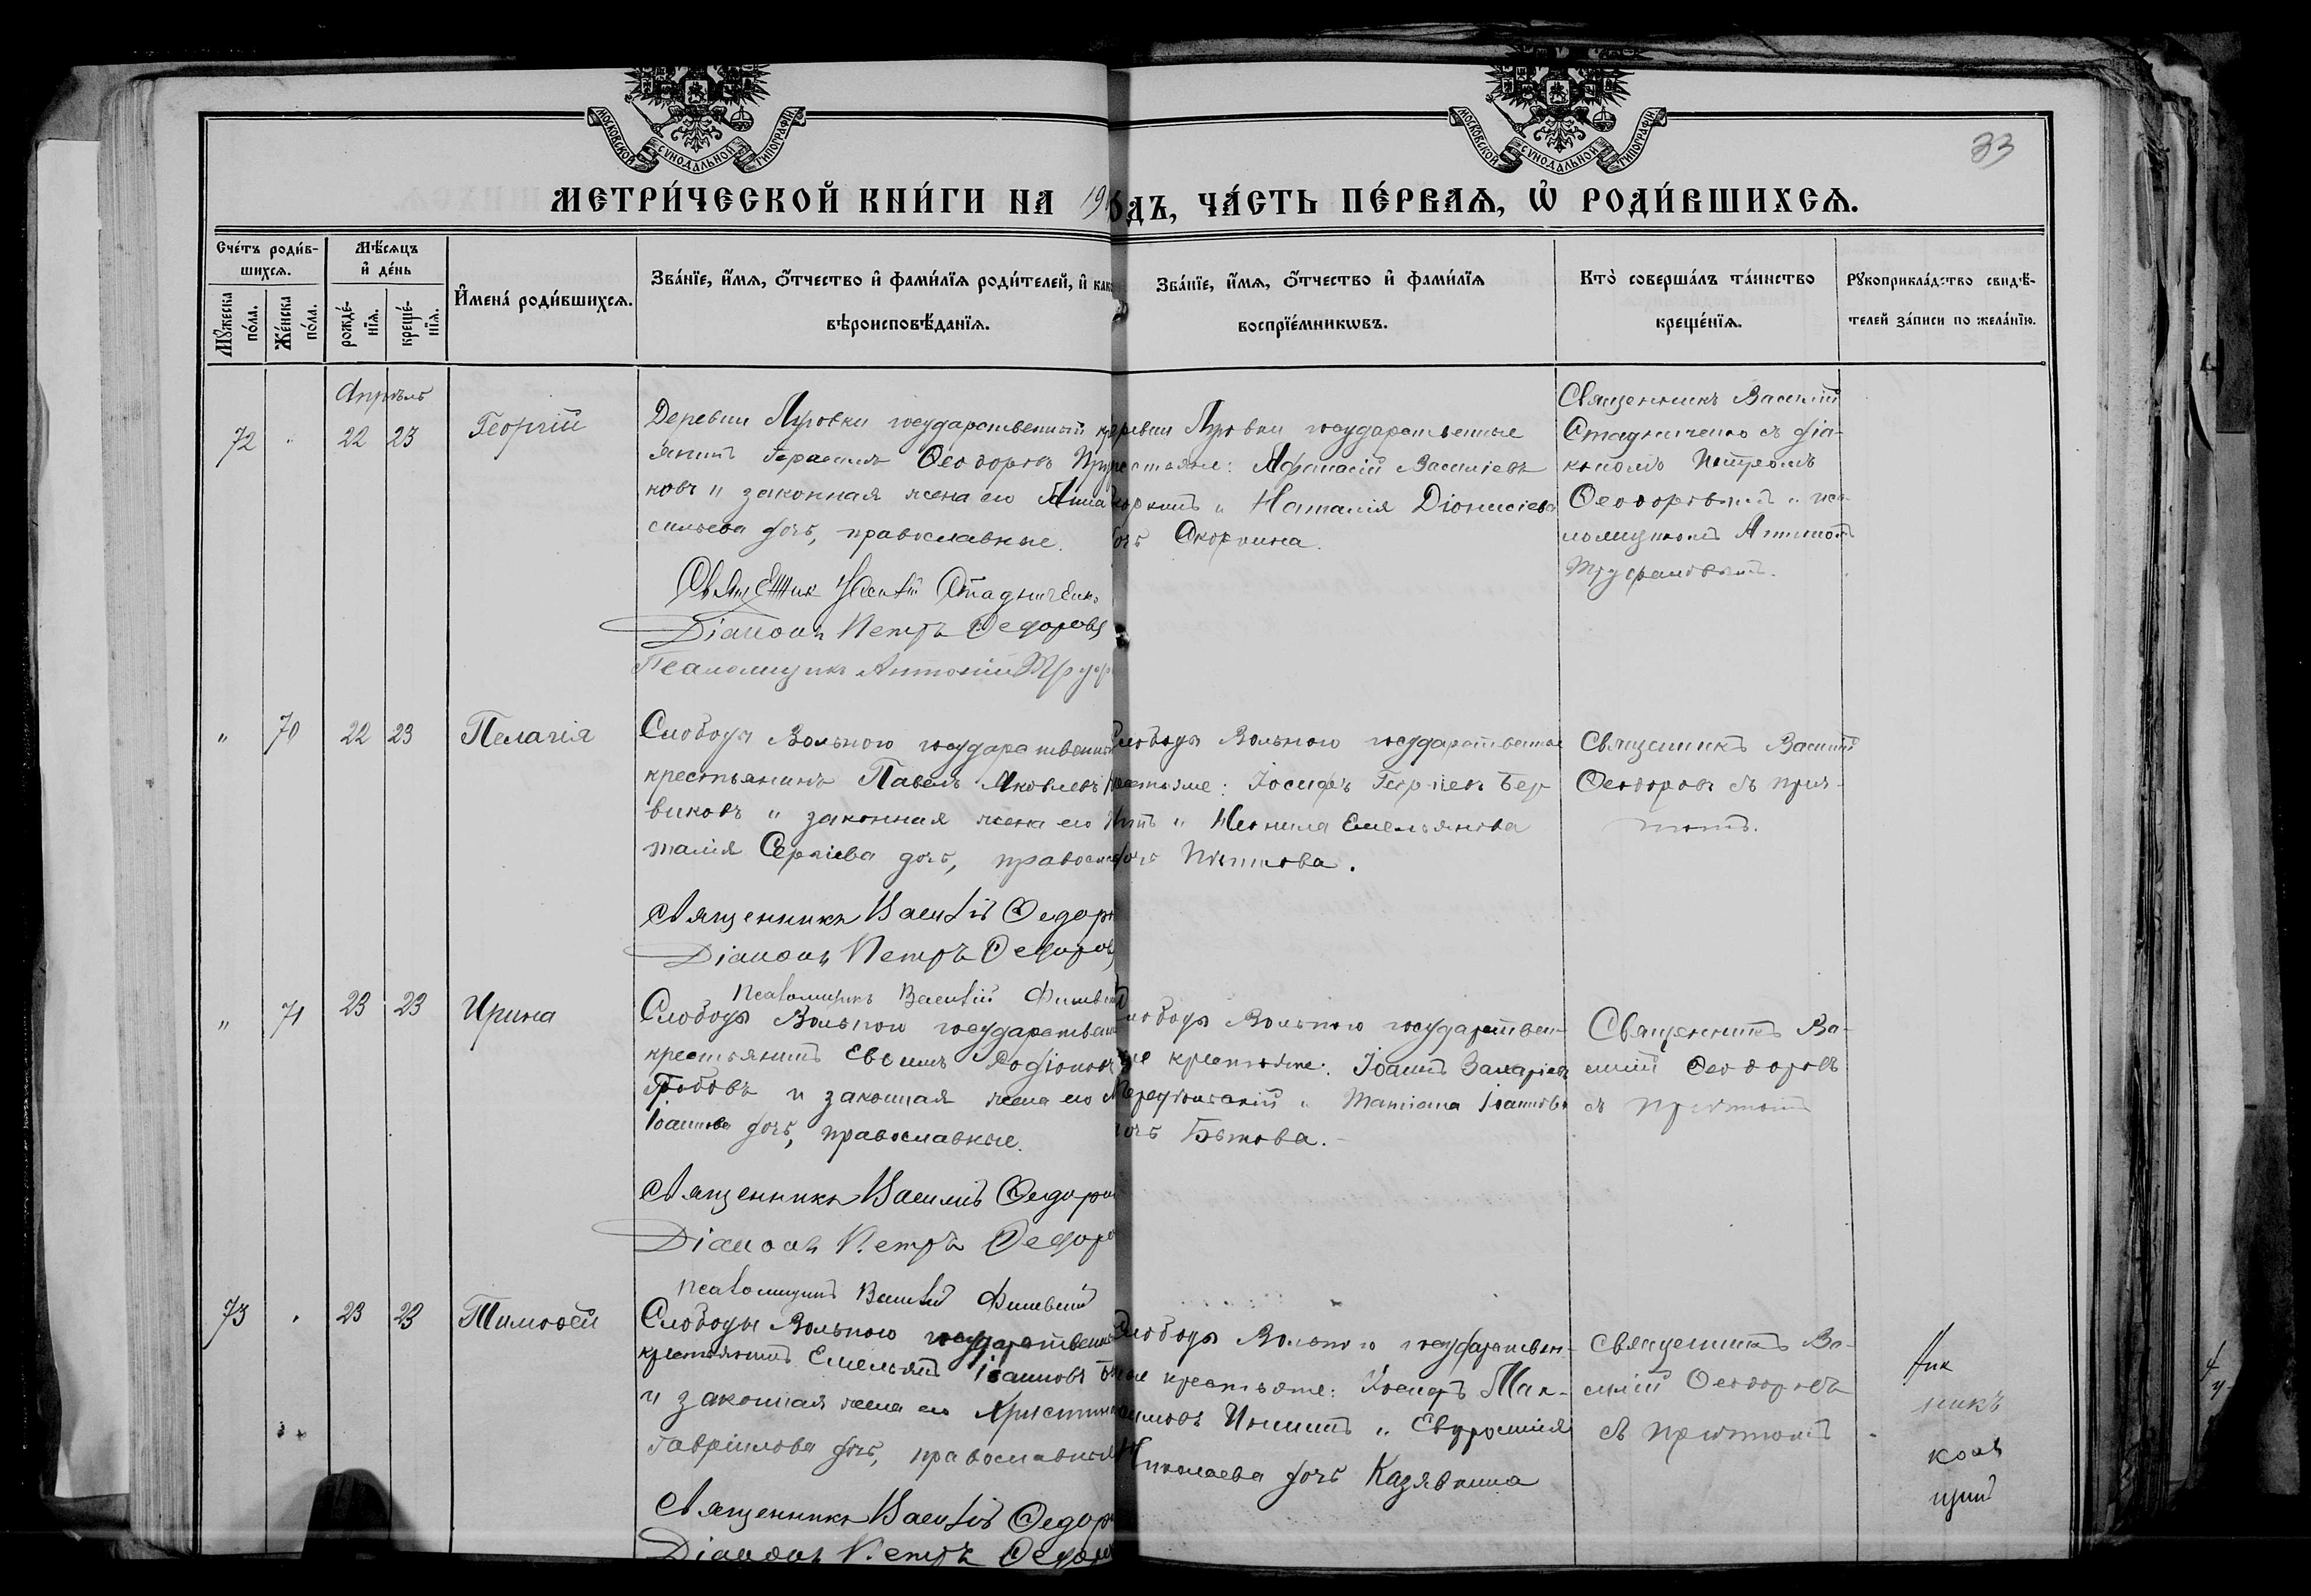 МОСКОВСКОЙ СѴНОДАЛЬНОЙ ТИПОГРАФІИ
МОСКОВСКОЙ СѴНОДАЛЬНОЙ ТИПОГРАФІИ
33
МЕТРИ́ЧЕСКОЙ КНИ́ГИ НА 191 ОДЪ, ЧА́СТЬ ПЕ́РВАѦ, Ѡ҆ РОДИ́ВШИХСѦ.
Сче́тъ роди́в-
шихсѧ.
Мѣ́сѧцъ
и҆ де́нь
Мꙋ́жеска по́ла.
Же́нска по́ла.
рожде́-нїѧ.
креще́-нїѧ.
И҆мена́ роди́вшихсѧ.
Зва́нїе, и҆́мѧ, ѻ҆́тчество и҆ фами́лїѧ роди́телей, и҆ как
вѣроисповѣ́данїѧ.
Зва́нїе, и҆́мѧ, ѻ҆́тчество и҆ фами́лїѧ
воспрїе́мникѡвъ.
Кто̀ соверша́лъ та́инство
креще́нїѧ.
Рꙋкоприкла́дство свидѣ́-
телей за́писи по жела́нїю.
Апрѣль
72 " 22 23 Георгій
Деревни Луговки государственный кр
янинъ Герасимъ Ѳеодоровъ
ковъ и законная жена его Анна
сильева дочь, православные.
Священник Василій Стадниченко
Діаконъ Петръ Ѳедоровъ
Псаломщикъ Антоній
ревни Луговки государственные
рестьяне: Афанасій Василіевъ
и Наталія Діонисіева
очь
Священникъ Василій
Стадниченко съ діа-
кономъ Петромъ
Ѳеодоровымъ и пса-
ломщикомъ Антоніемъ
" 70 22 23 Пелагія
Слободы Вольного государственный
крестьянинъ Павелъ Яковлевъ
виковъ и законная жена его
талія Сергіева дочь, правосла
Священникъ Василій Ѳедоро
Діаконъ Петръ Ѳедоровъ
Псаломщикъ Василій
лободы Вольного государственные
рестьяне: Іосифъ Георгіевъ
и Неонила Емельянова
очь
Священникъ Василій
Ѳеодоровъ съ прич-
томъ.
" 71 23 23 Ирина
Слободы Вольного государствен
крестьянинъ Евѳимъ Родіоновъ
и законная жена его
Іоаннова дочь, православные.
Священникъ Василій Ѳедоро
Діаконъ Петръ Ѳедоро
Псаломщикъ Василій
лободы Вольного государствен-
ые крестьяне: Іоаннъ Захаріевъ
и Татіана Іоаннова
очь Бѣтова.
Священникъ Ва-
силій Ѳеодоровъ
съ причтомъ
73 " 23 23 Тимоѳей
Слободы Вольного государствен
крестьянинъ Емельянъ Іоанновъ
и законная жена его Христина
Гавріилова дочь, православные
Священникъ Василій Ѳедор
Діаконъ Петръ Ѳедоро
лободы Вольного государствен-
ые крестьяне: Іосифъ Мак-
симовъ и Евфросинія
Николаева дочь Казявкина
Священникъ Ва-
силій Ѳеодоровъ
съ причтомъ
никъ
конъ
щикъ